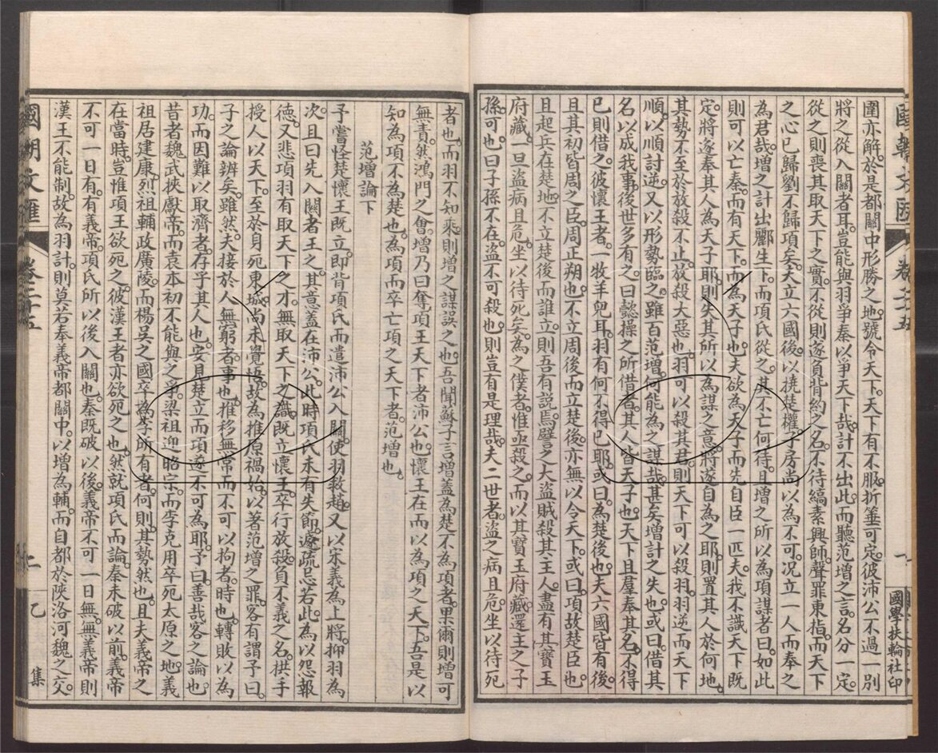 國朝文匯 卷二十五
國學扶輪社印
圍亦解於是都關中形勝之地號令天下天下有不服折箠可定彼沛公不過一別
將之從入關者耳豈能與羽爭秦以爭天下哉計不出此而聽范增之言名分一定
從之則喪其取天下之實不從則遂負背約之名不待縞素興師聲罪東指而天下
之心已歸劉不歸項矣夫立六國後以撓楚權子房尚以為不可况立一人而奉之
為君哉增之計出酈生下而項氏從之其不亡何待且增之所以為項謀者曰如此
則可以亡秦而有天下而為天子也夫欲為天子而先自臣一匹夫我不識天下既
定將遂奉其人為天子耶則失其所以為謀之意將遂自為之耶則置其人於何地
其勢不至於放殺不止放殺大惡也羽可以殺其君則天下可以殺羽羽逆而天下
順以順討逆又以形勢臨之雖百范增何能為之謀哉甚矣增計之失也或曰借其
名以成我事後世多有之曰懿操之所借者其人皆天子也天下且羣奉其名不得
已則借之彼懷王者一牧羊兒耳羽有何不得已耶或曰為楚後也夫六國皆有後
且其初皆周之臣周正朔也不立周後而立楚後亦無以令天下或曰項故楚臣也
且起兵在楚地不立楚後而誰立則吾有說焉譬之大盜賊殺其主人盡有其寶玉
府藏一旦盜病且危坐以待死矣為之僕者惟亟殺之而以其寶玉府藏還主之子
孫可也曰子孫不在盜不可殺也則豈有是理哉夫二世者盜之病且危坐以待死
者也而羽不知來則增之謀誤之也吾聞蘇子言增蓋為楚不為項者果爾則增可
無責然鴻門之會增乃曰奪項王天下者沛公也懷王在而以為項之天下吾是以
知為項不為楚也為項而卒亡項之天下者范增也
范增論下
予嘗怪楚懷王既立即背項氏而遣沛公入關使羽救趙又以宋義為上將抑羽為
次且曰先入關者王之其意蓋在沛公此時項氏未有失節遽疏忌若此為以怨報
德又悲項羽有取天下之才無取天下之識既立懷王卒行放殺負不義之名拱手
授人以天下至於身死東城尚未覺悟故為推原禍始以著范增之罪客有謂予曰
子之論辨矣雖然夫接於人無窮者事也推移無常而不可以拘者時也轉敗以為
功而因難以取濟者存乎其人也安見楚立而項遂不可為耶予曰善哉客之論也
昔者魏武挾獻帝而袁本初不能與之爭梁祖迎昭宗而李克用卒死太原之地義
祖居建康烈祖輔政廣陵而楊吳之國卒為李所有者何則其勢然也且夫義帝之
在當時豈惟項王欲死之彼漢王者亦欲死之也然就項氏而論秦未破以前義帝
不可一日有有義帝項氏所以後入關也秦既破以後義帝不可一日無無義帝則
漢王不能制故為羽計則莫若奉義帝都關中以增為輔而自都於陝洛河魏之交
國朝文匯 卷二十五
二
乙集